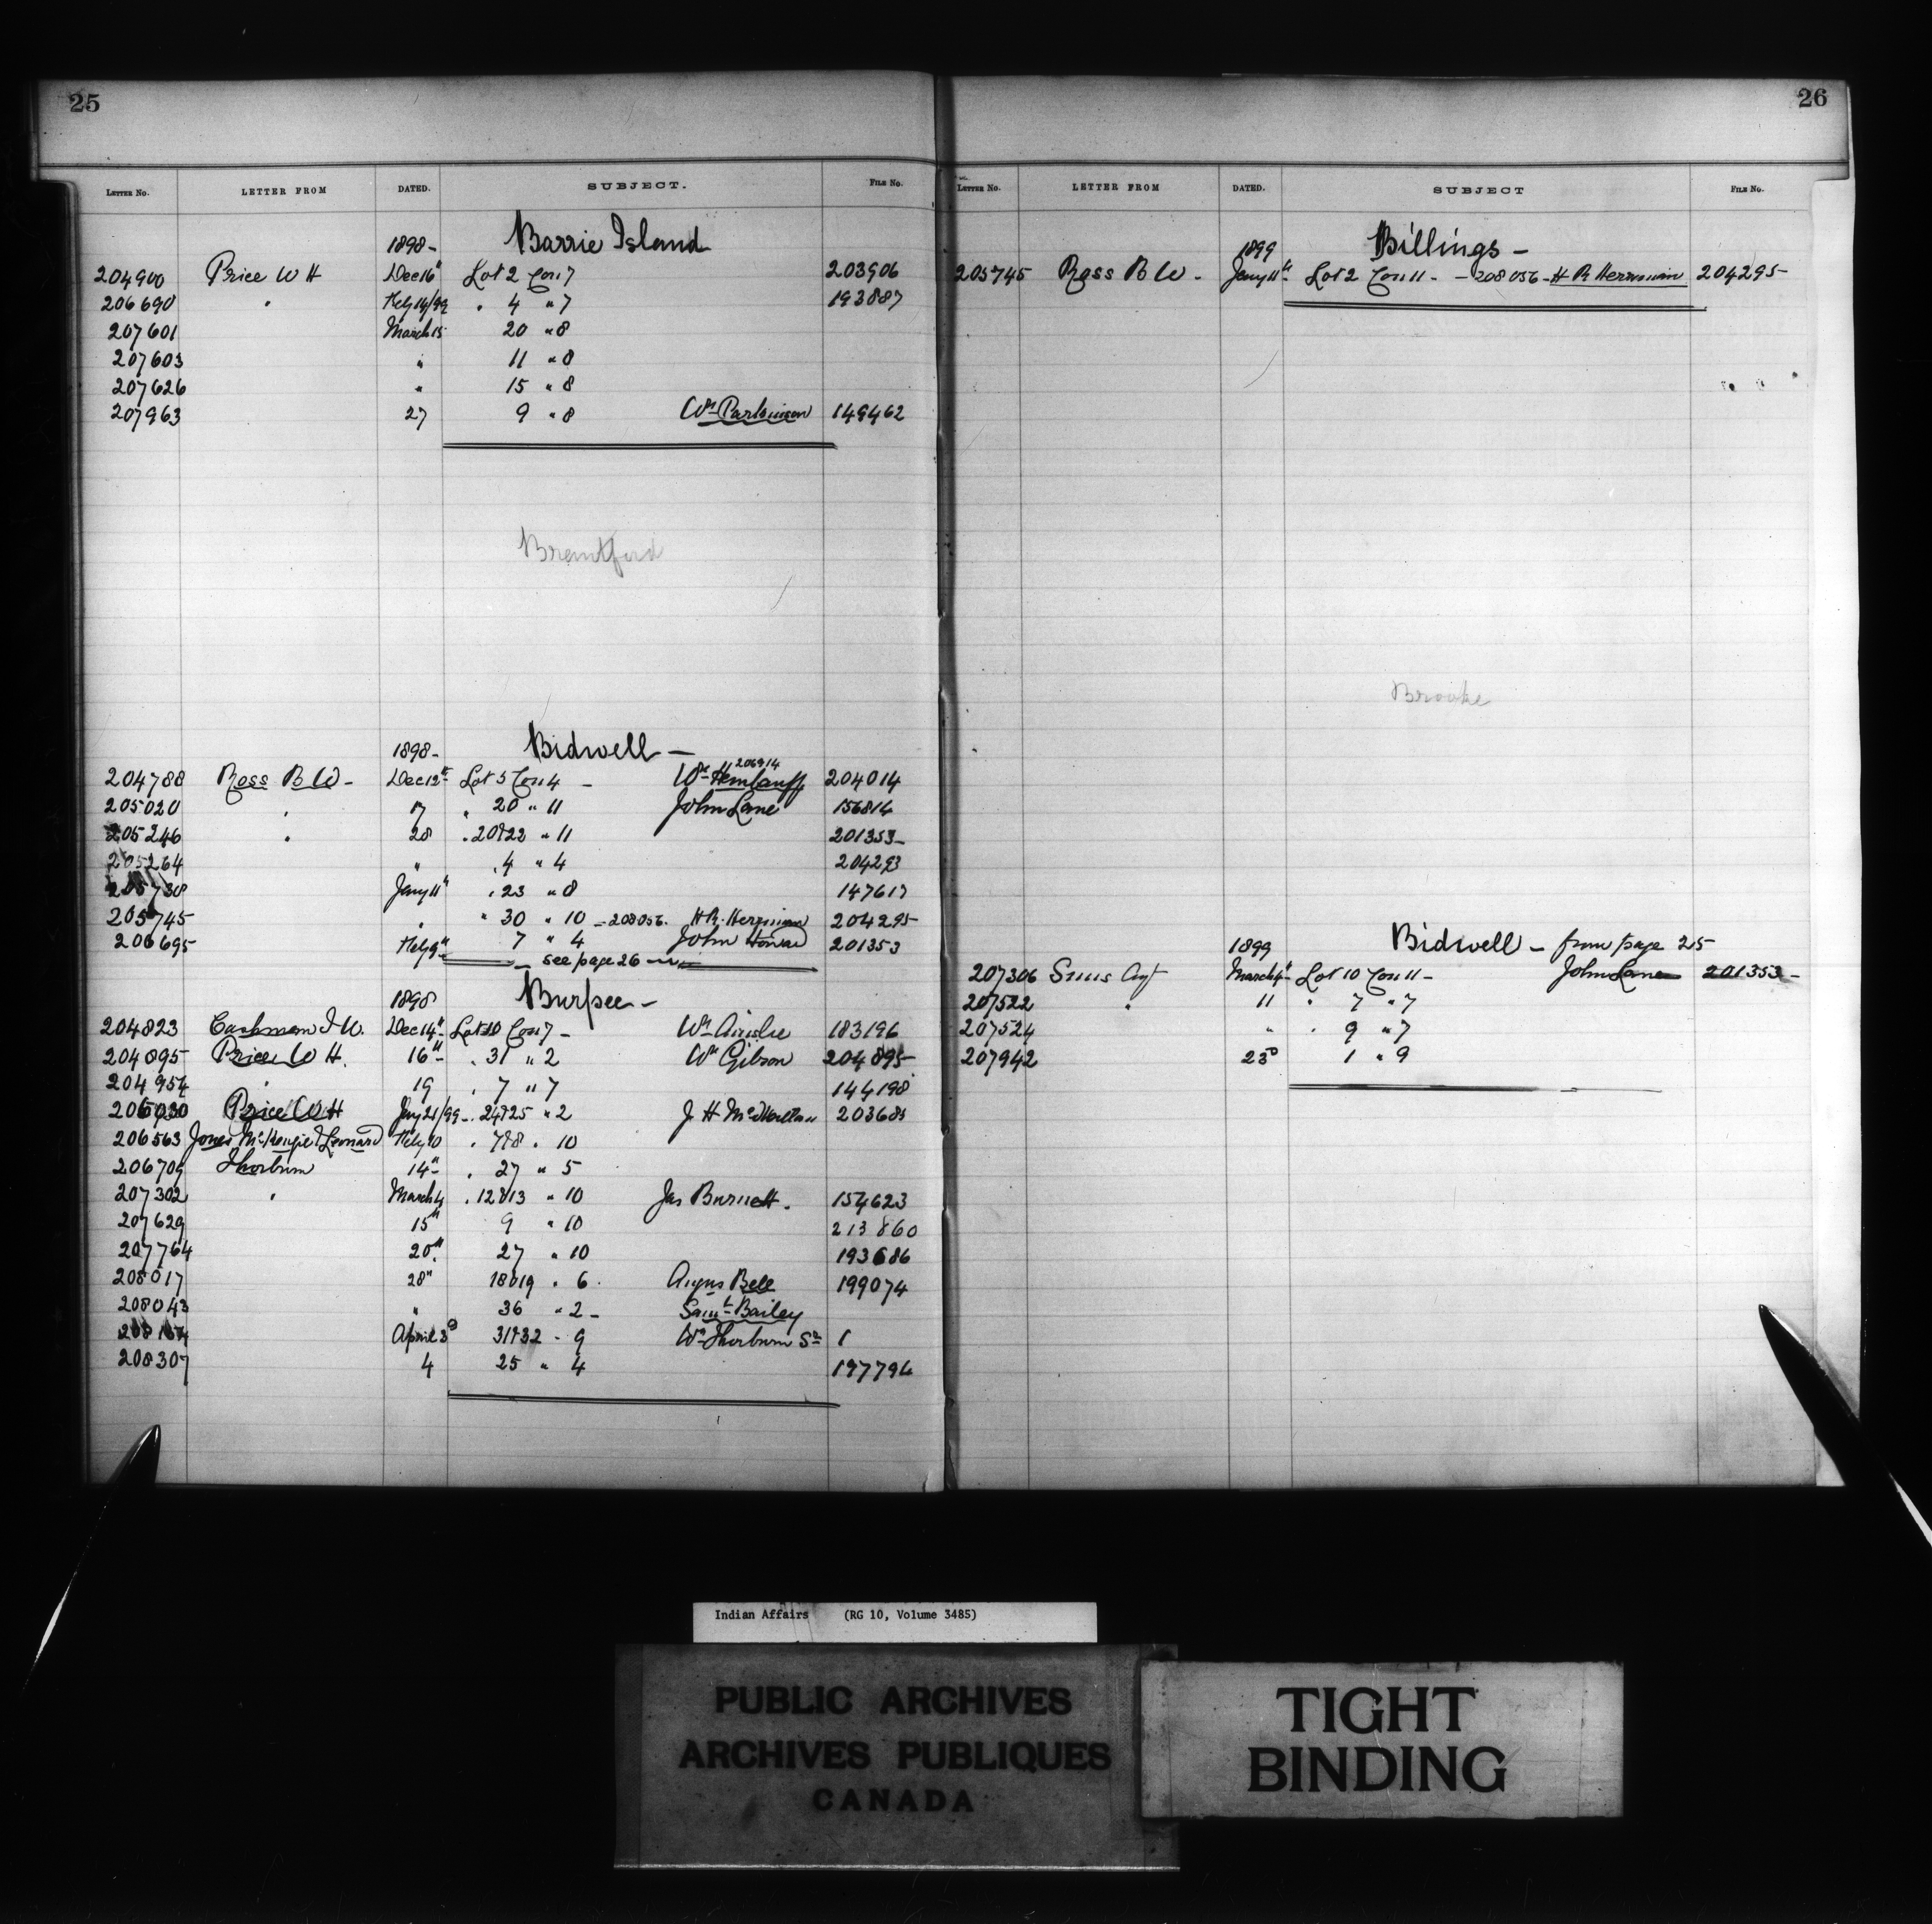 25
LETTER No. LETTER FROM DATED. SUBJECT. FILE No.
1898- Barrie Island
204900 Price W H Dec 16" Lot 2 Con 7 203906
206690 " Feby 14/99 " 4 " 7 193887
207601 March 15 20 " 8
207603 " 11 " 8
207626 " 15 " 8
207963 27 9 " 8 Wm Parkinson 149462
Brantford
1898- Bidwell -
206914
204788 Ross B W - Dec 12" Lot 5 Con 4 - Wm 204014
205020 " 17 " 20 " 11 John Lane 156814
205246 " 28 " 20&22 " 11 201353-
205264 " " 4 " 4 204293
205738 Jany 11" " 23 " 8 147617
205745 " " 30 " 10 - 208056. H R. Herriman 204295-
206695 Feby 9" 7 " 4 John Howard 201353
- see page 26 -
1898 Burpee -
204823 Cashman I W. Dec 14" Lot 10 Con 7 - Wm Ainslie 183196
204895 Price W H. 16" " 31 " 2 Wm Gibson 204895-
204954 " 19 " 7 " 7 144198
206030 Price W H Jany 21/99 - 24&25 " 2 J H 203685
206563 Jones McKenzie & Leonard Feby 10 " 7&8 " 10
206709 Thorburn 14" " 27 " 5
207302 " March 4 " 12&13 " 10 Jas Burnett. 154623
207629 15" 9 " 10 213860
207764 20" 27 " 10 193686
208017 28" 18&19 " 6. Angus Bell 199074
208043 " 36 " 2 - Saml Bailey
208164 April 3d 31&32 - 9 Wm Thorburn Sr 1
208307 4 25 " 4 197794
26
LETTER No. LETTER FROM DATED. SUBJECT FILE No.
1899 Billings -
205745 Ross B W - Jany 11th Lot 2 Con 11 - - 208056 - H R Herriman 204295-
Brooke
1899 Bidwell - from page 25
207306 Sims Agt March 4" Lot 10 Con 11 - John Lane 201353 -
207522 " 11 " 7 " 7
207524 " " 9 " 7
207942 23d 1 " 9
Indian Affairs (RG 10, Volume 3485)
PUBLIC ARCHIVES
ARCHIVES PUBLIQUES
CANADA
TIGHT
BINDING